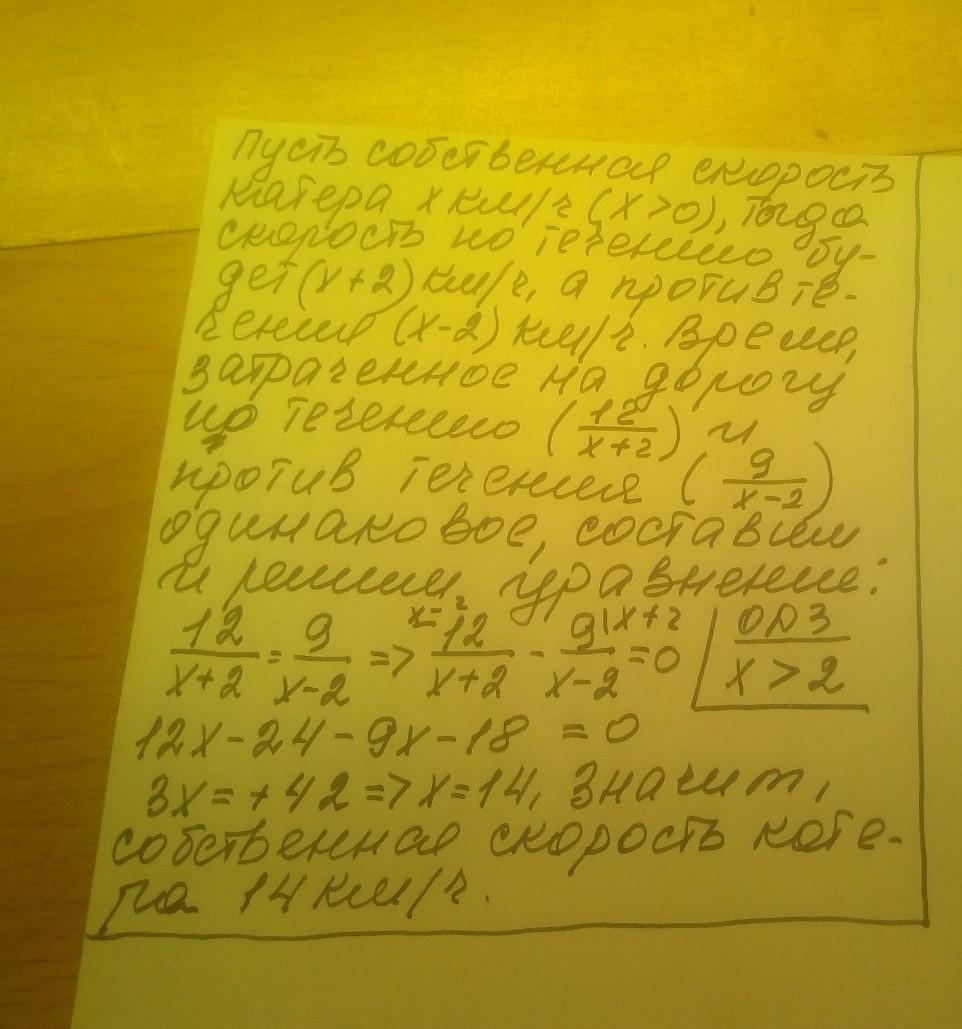 Пусть собственная скорость
катера x км/ч (x>0), тогда
скорость по течению бу-
дет (x+2) км/ч, а против те-
чения (x-2) км/ч. Время,
затраченное на дорогу
по течению (12/(x+2)) и
против течения (9/(x-2))
одинаковое, составим
и решим уравнение:
12/(x+2) = 9/(x-2) => x-2 12/(x+2) - 9/(x-2) |x+2 = 0 ОДЗ x>2
12x-24-9x-18 = 0
3x=+42=>x=14, Значит,
собственная скорость кате-
ра 14 км/ч.